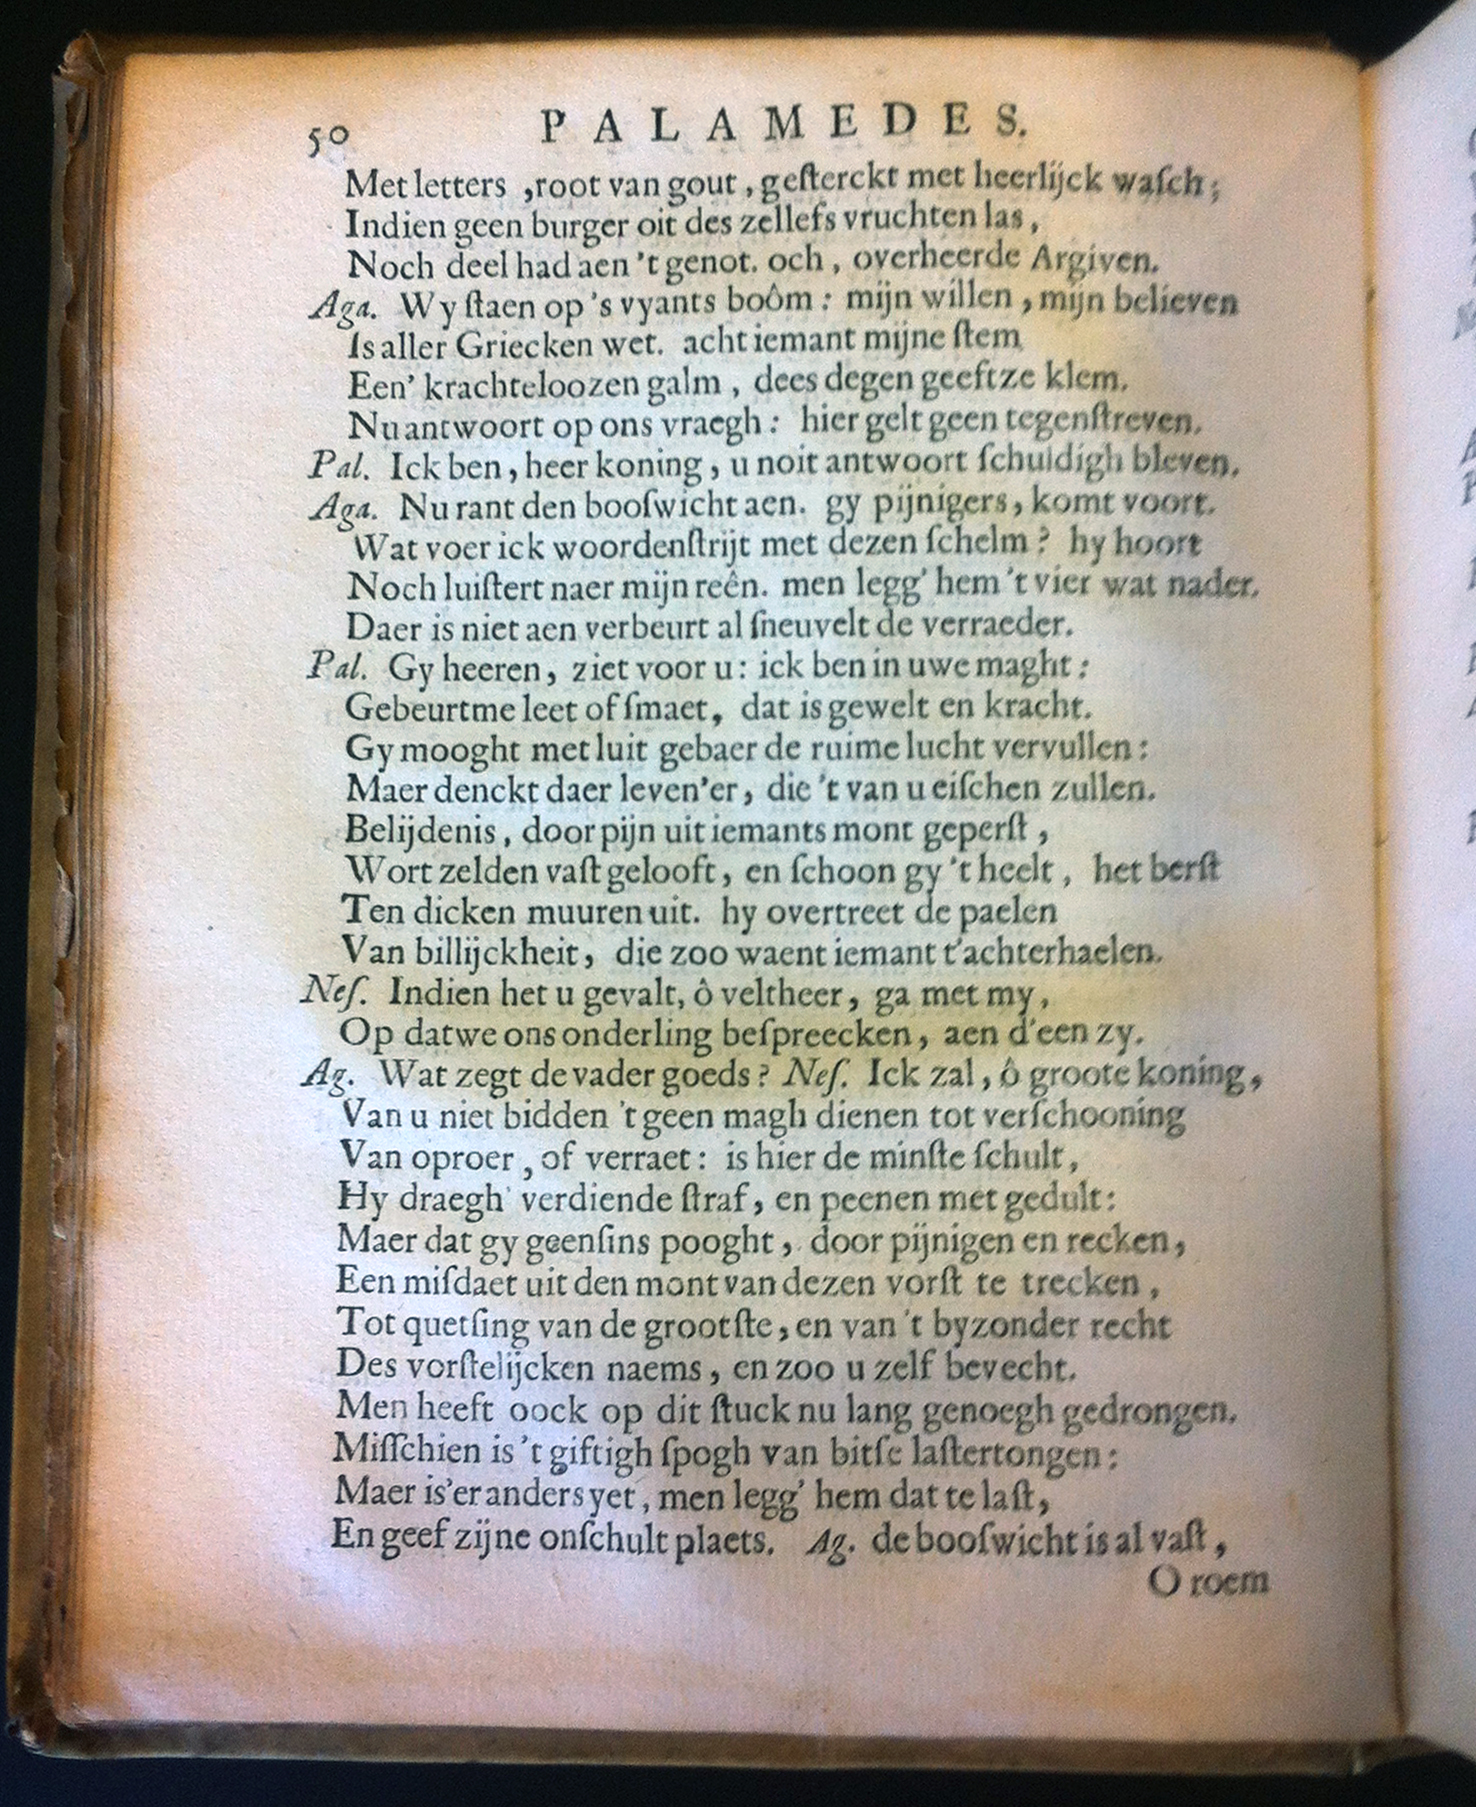 50 PALAMEDES.
Met letters ,root van gout, geſterckt met heerlijck waſch;
Indien geen burger oit des zellefs vruchten las,
Noch deel had aen 't genot. och, overheerde Argiven.
Aga. Wy ſtaen op 's vyants boôm: mijn willen, mijn believen
Is aller Griecken wet. acht iemant mijne ſtem
Een' krachteloozen galm, dees degen geeftze klem.
Nu antwoort op ons vraegh: hier gelt geen tegenſtreven.
Pal. Ick ben, heer koning, u noit antwoort ſchuldigh bleven.
Aga. Nu rant den booſwicht aen. gy pijnigers, komt voort.
Wat voer ick woordenſtrijt met dezen ſchelm? hy hoort
Noch luiſtert naer mijn reên. men legg' hem 't vier wat nader.
Daer is niet aen verbeurt al ſneuvelt de verraeder.
Pal. Gy heeren, ziet voor u: ick ben in uwe maght:
Gebeurtme leet of ſmaet, dat is gewelt en kracht.
Gy mooght met luit gebaer de ruime lucht vervullen:
Maer denckt daer leven'er, die 't van u eiſchen zullen.
Belijdenis, door pijn uit iemants mont geperſt,
Wort zelden vaſt gelooft, en ſchoon gy 't heelt, het berſt
Ten dicken muuren uit. hy overtreet de paelen
Van billijckheit, die zoo waent iemant t'achterhaelen.
Neſ. Indien het u gevalt, ô veltheer, ga met my,
Op datwe ons onderling beſpreecken, aen d'een zy.
Ag. Wat zegt de vader goeds? Neſ. Ick zal, ô groote koning,
Van u niet bidden 't geen magh dienen tot verſchooning
Van oproer, of verraet: is hier de minſte ſchult,
Hy draegh' verdiende ſtraf, en peenen met gedult:
Maer dat gy geenſins pooght, door pijnigen en recken,
Een miſdaet uit den mont van dezen vorſt te trecken,
Tot quetſing van de grootſte, en van 't byzonder recht
Des vorſtelijcken naems, en zoo u zelf bevecht.
Men heeft oock op dit ſtuck nu lang genoegh gedrongen.
Miſſchien is 't giftigh ſpogh van bitſe laſtertongen:
Maer is'er anders yet, men legg' hem dat te laſt,
En geef zijne onſchult plaets. Ag. de booſwicht is al vaſt,
O roem